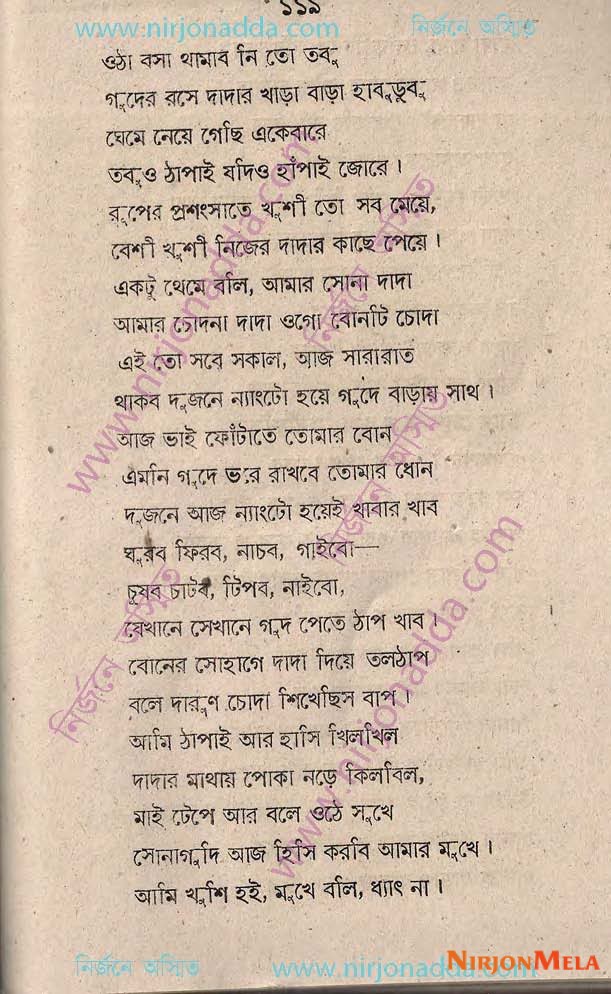 ১১৯
www.nirjonadda.com নির্জনে অস্মিত
ওঠা বসা থামাব নি তো তবু
গুদের রসে দাদার খাড়া বাড়া হাবুডুবু
ঘেমে নেয়ে গেছি একেবারে
তবুও ঠাপাই যদিও হাঁপাই জোরে ।
রূপের প্রশংসাতে খুশী তো সব মেয়ে,
বেশী খুশী নিজের দাদার কাছে পেয়ে ।
একটু থেমে বলি, আমার সোনা দাদা
আমার চোদনা দাদা ওগো বোনটি চোদা
এই তো সবে সকাল, আজ সারারাত
থাকব দুজনে ন্যাংটো হয়ে গুদে বাড়ায় সাথ ।
আজ ভাই ফোঁটাতে তোমার বোন
এমনি গুদে ভরে রাখবে তোমার ধোন
দুজনে আজ ন্যাংটো হয়েই খাবার খাব
ঘুরব ফিরব, নাচব, গাইবো—
চুষব চাটব, টিপব, নাইবো,
যেখানে সেখানে গুদ পেতে ঠাপ খাব ।
বোনের সোহাগে দাদা দিয়ে তলঠাপ
বলে দারুণ চোদা শিখেছিস বাপ ।
আমি ঠাপাই আর হাসি খিলখিল
দাদার মাথায় পোকা নড়ে কিলবিল,
মাই টেপে আর বলে ওঠে সুখে
সোনাগুদি আজ হিসি করবি আমার মুখে ।
আমি খুশি হই, মুখে বলি, ধ্যাৎ না ।
নির্জনে অস্মিত www.nirjonadda.com
NIRJONMELA